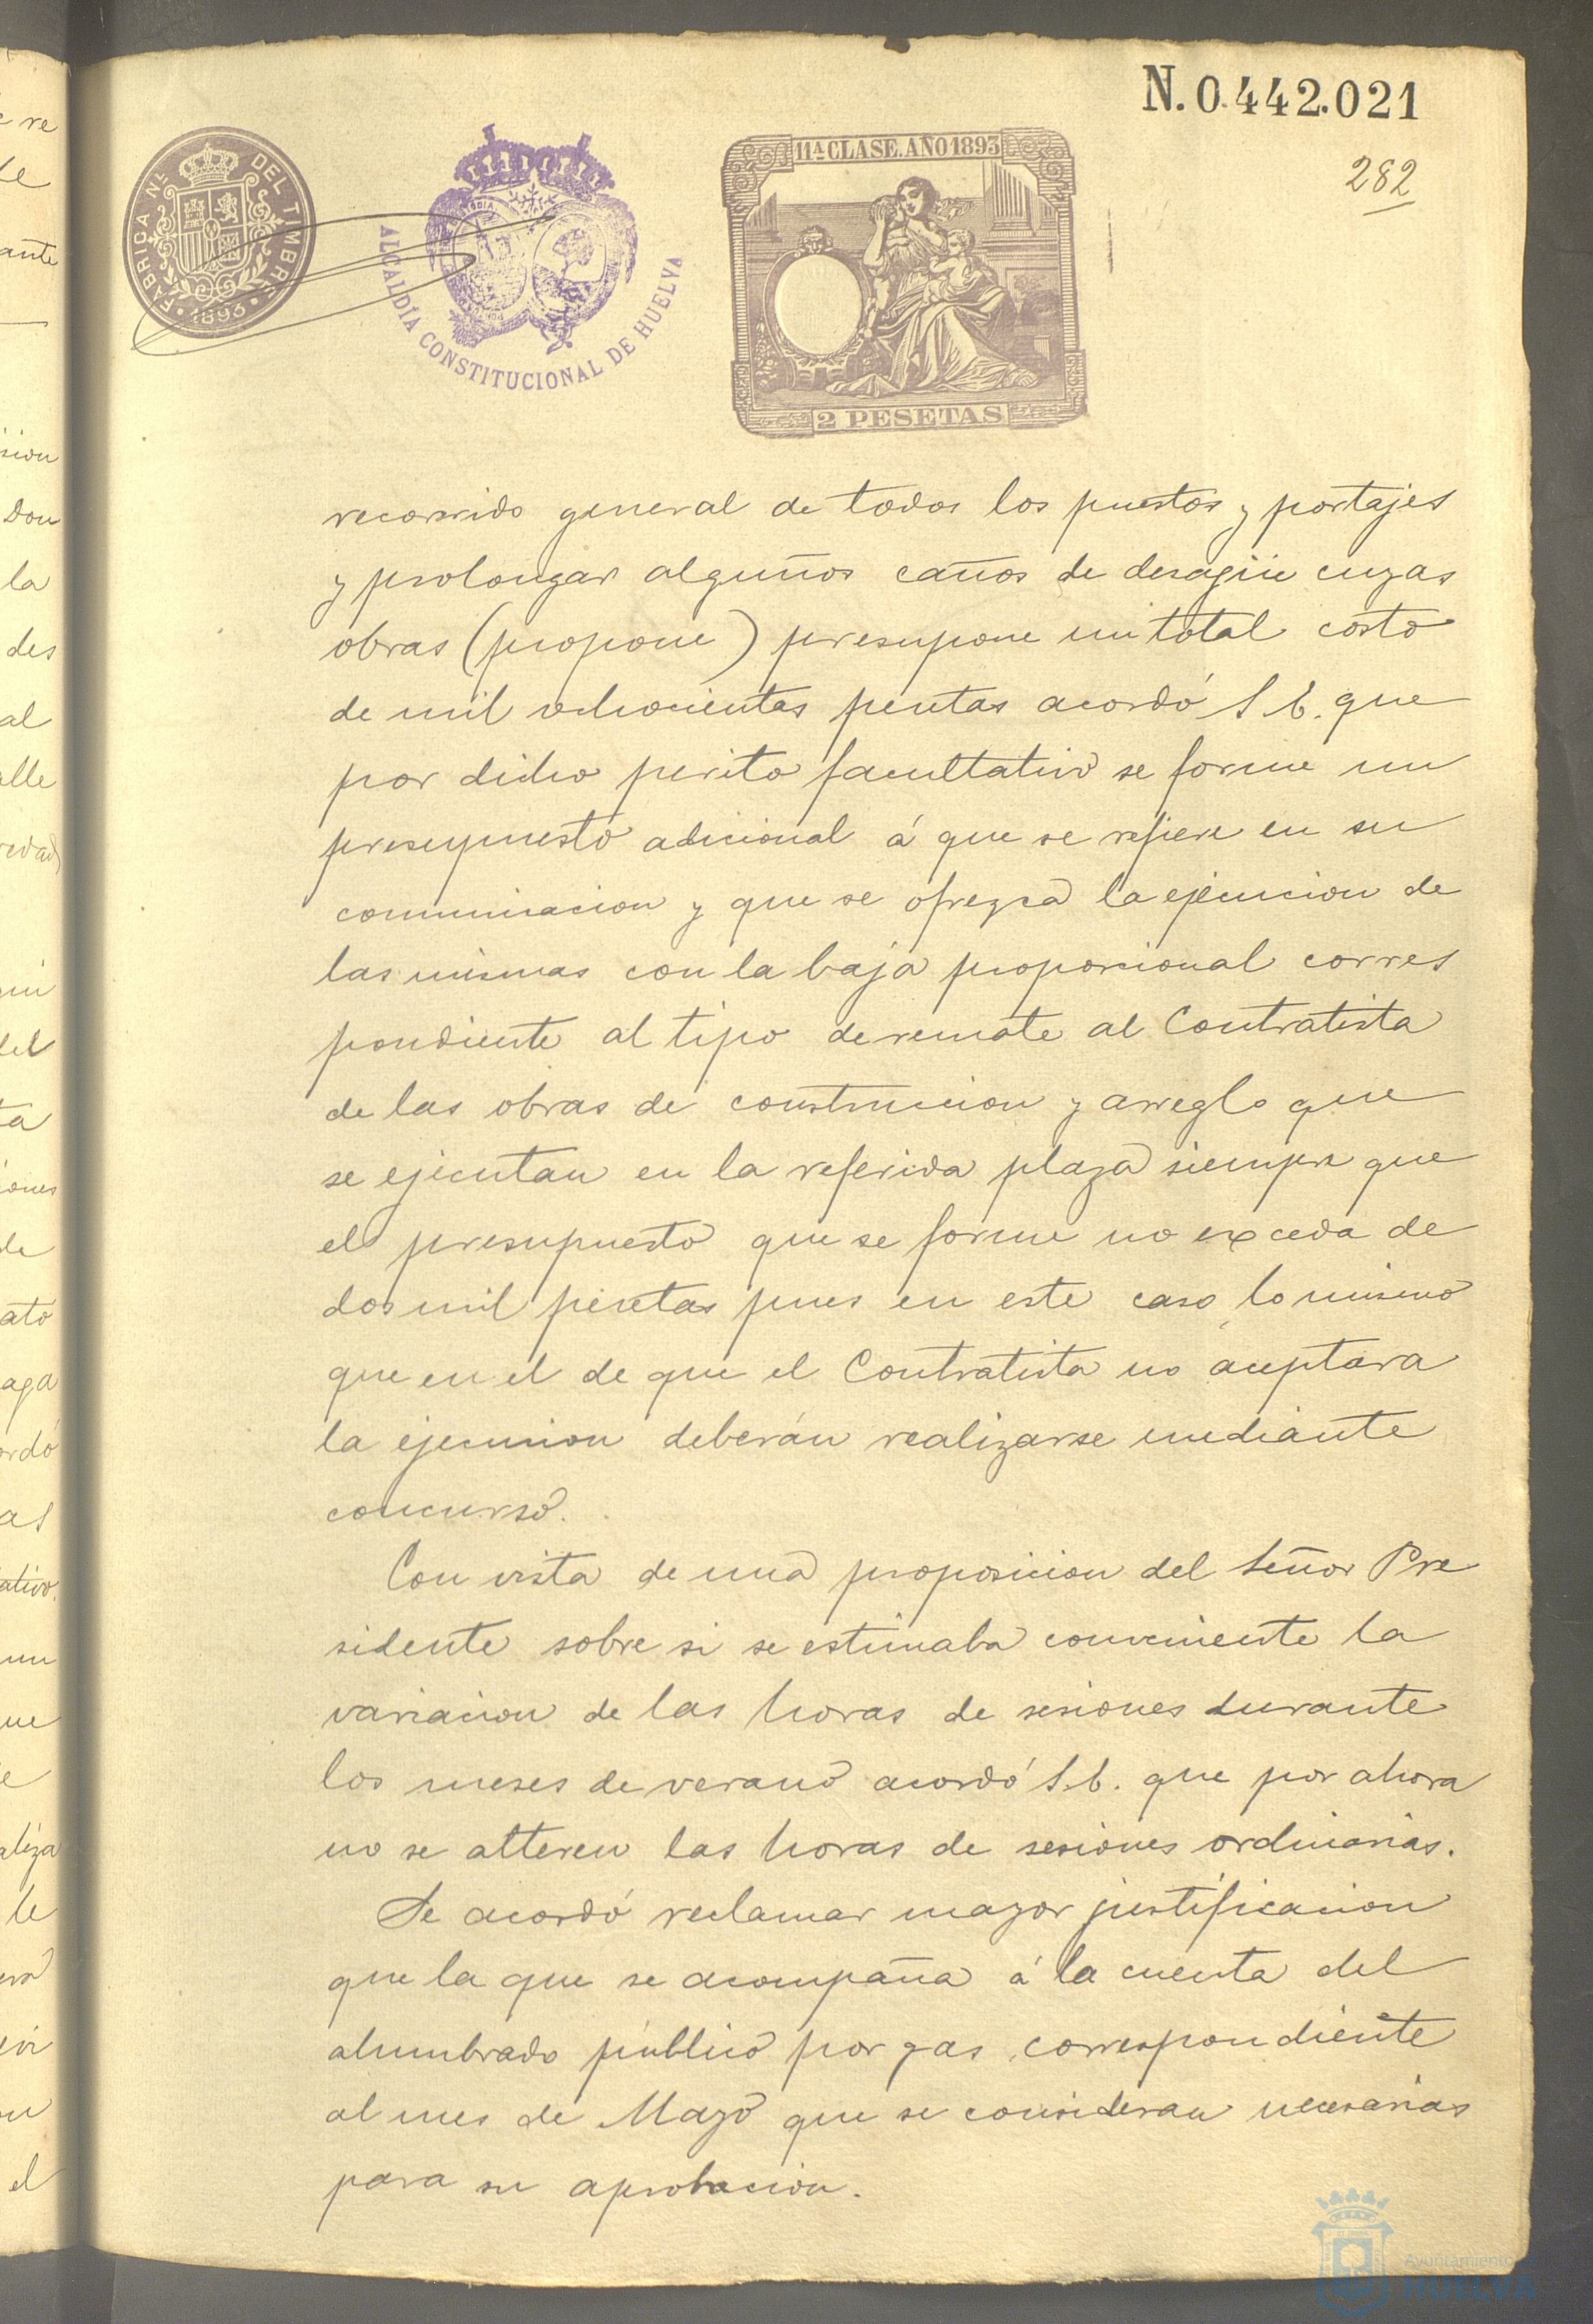 N. 0.442.021
282
FABRICA NL. DEL TIMBRE
1893
ALCALDÍA CONSTITUCIONAL DE HUELVA
11ª CLASE. AÑO 1893
2 PESETAS
recorrido general de todos los puestos y portajes
y prolongar algunos caños de desagüe cuyas
obras (propone) presupone un total costo
de mil ochocientas pesetas acordó S. C. que
por dicho perito facultativo se forme un
presupuesto adicional á que se refiere en su
comunicacion y que se ofrezca la ejecucion de
las mismas con la baja proporcional corres
pondiente al tipo de remate al Contratista
de las obras de construccion y arreglo que
se ejecutan en la referida plaza siempre que
el presupuesto que se forme no exceda de
dos mil pesetas pues en este caso, lo mismo
que en el de que el Contratista no aceptara
la ejecucion deberán realizarse mediante
concurso.
Con vista de una proposicion del Señor Pre
sidente sobre si se estimaba conveniente la
variacion de las horas de sesiones durante
los meses de verano acordó S. C. que por ahora
no se alteren las horas de sesiones ordinarias.
Se acordó reclamar mayor justificacion
que la que se acompaña á la cuenta del
alumbrado público por gas correspondiente
al mes de Mayo que se consideran necesarias
para su aprobacion.
Ayuntamiento
HUELVA